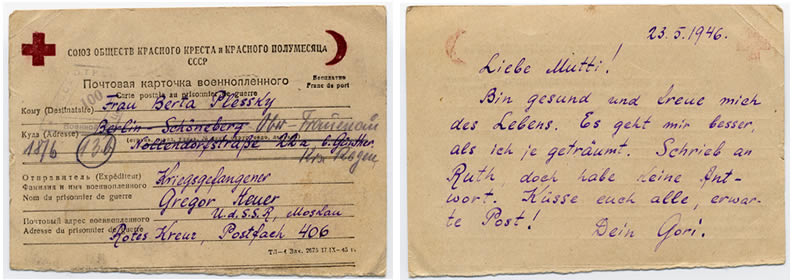 СОЮЗ ОБЩЕСТВ КРАСНОГО КРЕСТА и КРАСНОГО ПОЛУМЕСЯЦА
СССР
Почтовая карточка военнопленного
Carte postale du prisonnier de guerre
Бесплатно
Franc de port
Кому (Destinataire) Frau Berta Plessky
Куда (Adresse) Berlin-Schöneberg
Nollendorfstraße 22a b. Günther
1876 (136)
Отправитель (Expéditeur) Kriegsgefangener
Фамилия и имя военнопленного
Nom du prisonnier de guerre Gregor Heuer
Почтовый адрес военнопленного U.d.S.S.R., Moskau
Adresse du prisonnier de guerre Rotes Kreuz, Postfach 406
23.5.1946.
Liebe Mutti!
Bin gesund und freue mich
des Lebens. Es geht mir besser,
als ich je geträumt. Schrieb an
Ruth doch habe keine Ant-
wort. Küsse euch alle, erwar-
te Post! Dein Gori.